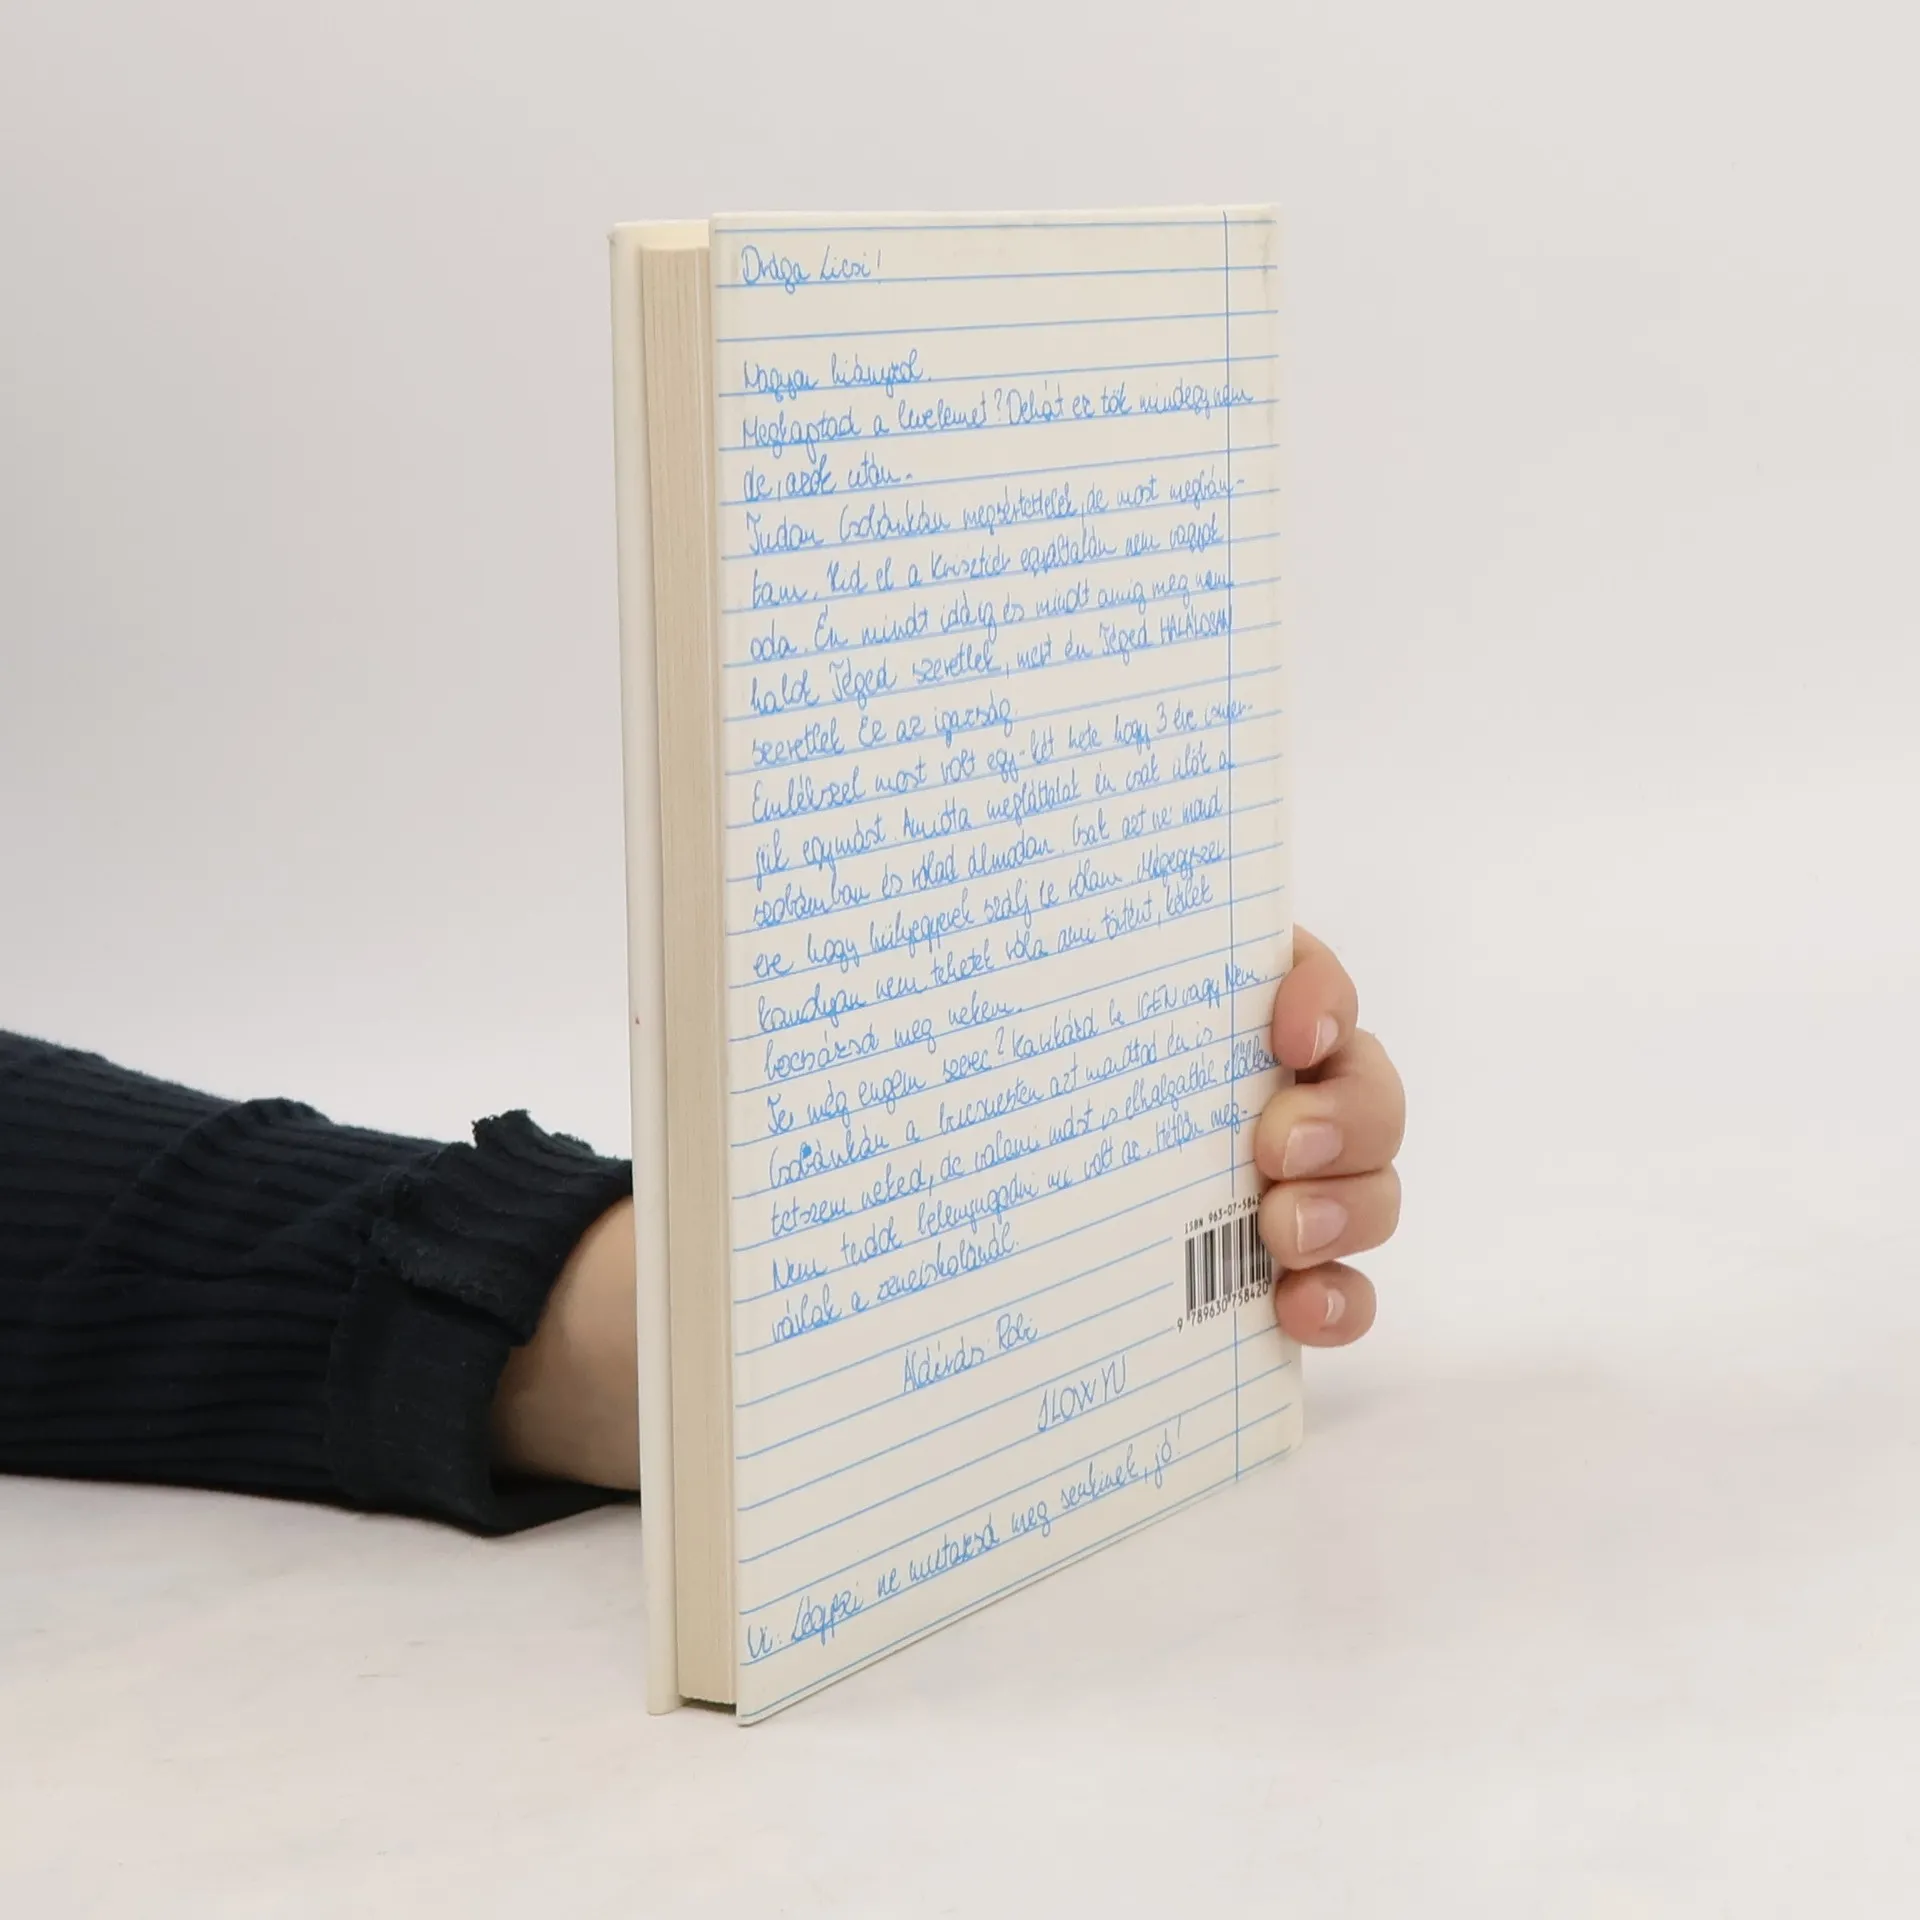 Drága Licsi!
Nagyon hiányzol.
Megkaptad a levelemet? Dehát ez tök mindegy nem
de, azok után.
Tudom Csobánkán megsértettelek, de most megbán-
tam. Hid el a Krisztiér egyáltalán nem vagyok
oda. Én mindt idáig és mindt amig meg nem
halok Téged szeretlek, mert én Téged HALÁLOSAN
szeretlek Ez az igazság.
Emlékszel most volt egy-két hete hogy 3 éve ismer-
jük egymást. Amióta megláttalak én csak ülök a
szobámban és rólad álmodom. Csak azt ne mond
erre hogy hülyegyerek szálj le rólam. Mégegyszer
komolyan nem tehetek róla ami történt, kérlek
bocsázsd meg nekem.
Te még engem szerec? Karikázd be IGEN vagy Nem.
Csobánkán a bucsuesten azt mondtad én is
tetszem neked, de valami mást is elhalgattál előllem
Nem tudok belenyugodni mi volt az. Hétfőn meg-
várlak a zeneiskolánál.
Robi
ILOWYU
Ui: Légyszi ne mutazsd meg senkinek, jó!
ISBN 963-07-5842
9 789630 758420